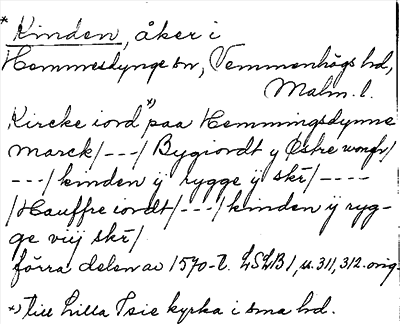 * Kinden, åker i
Hemmesdynge sn, Vemmenhögs hd,
Malm. l.
Kircke iord *) paa Hemmingsdynne
marck/---/ Bygiordt y Østre wongh/
---/ kinden ij rygge ij skr/----
/Hauffre iordt/---/ kinden ij ryg-
ge viij skr/
förra delen av 1570-t. LSLB 1, s. 311, 312. orig.
*) till Lilla Isie kyrka i sma hd.